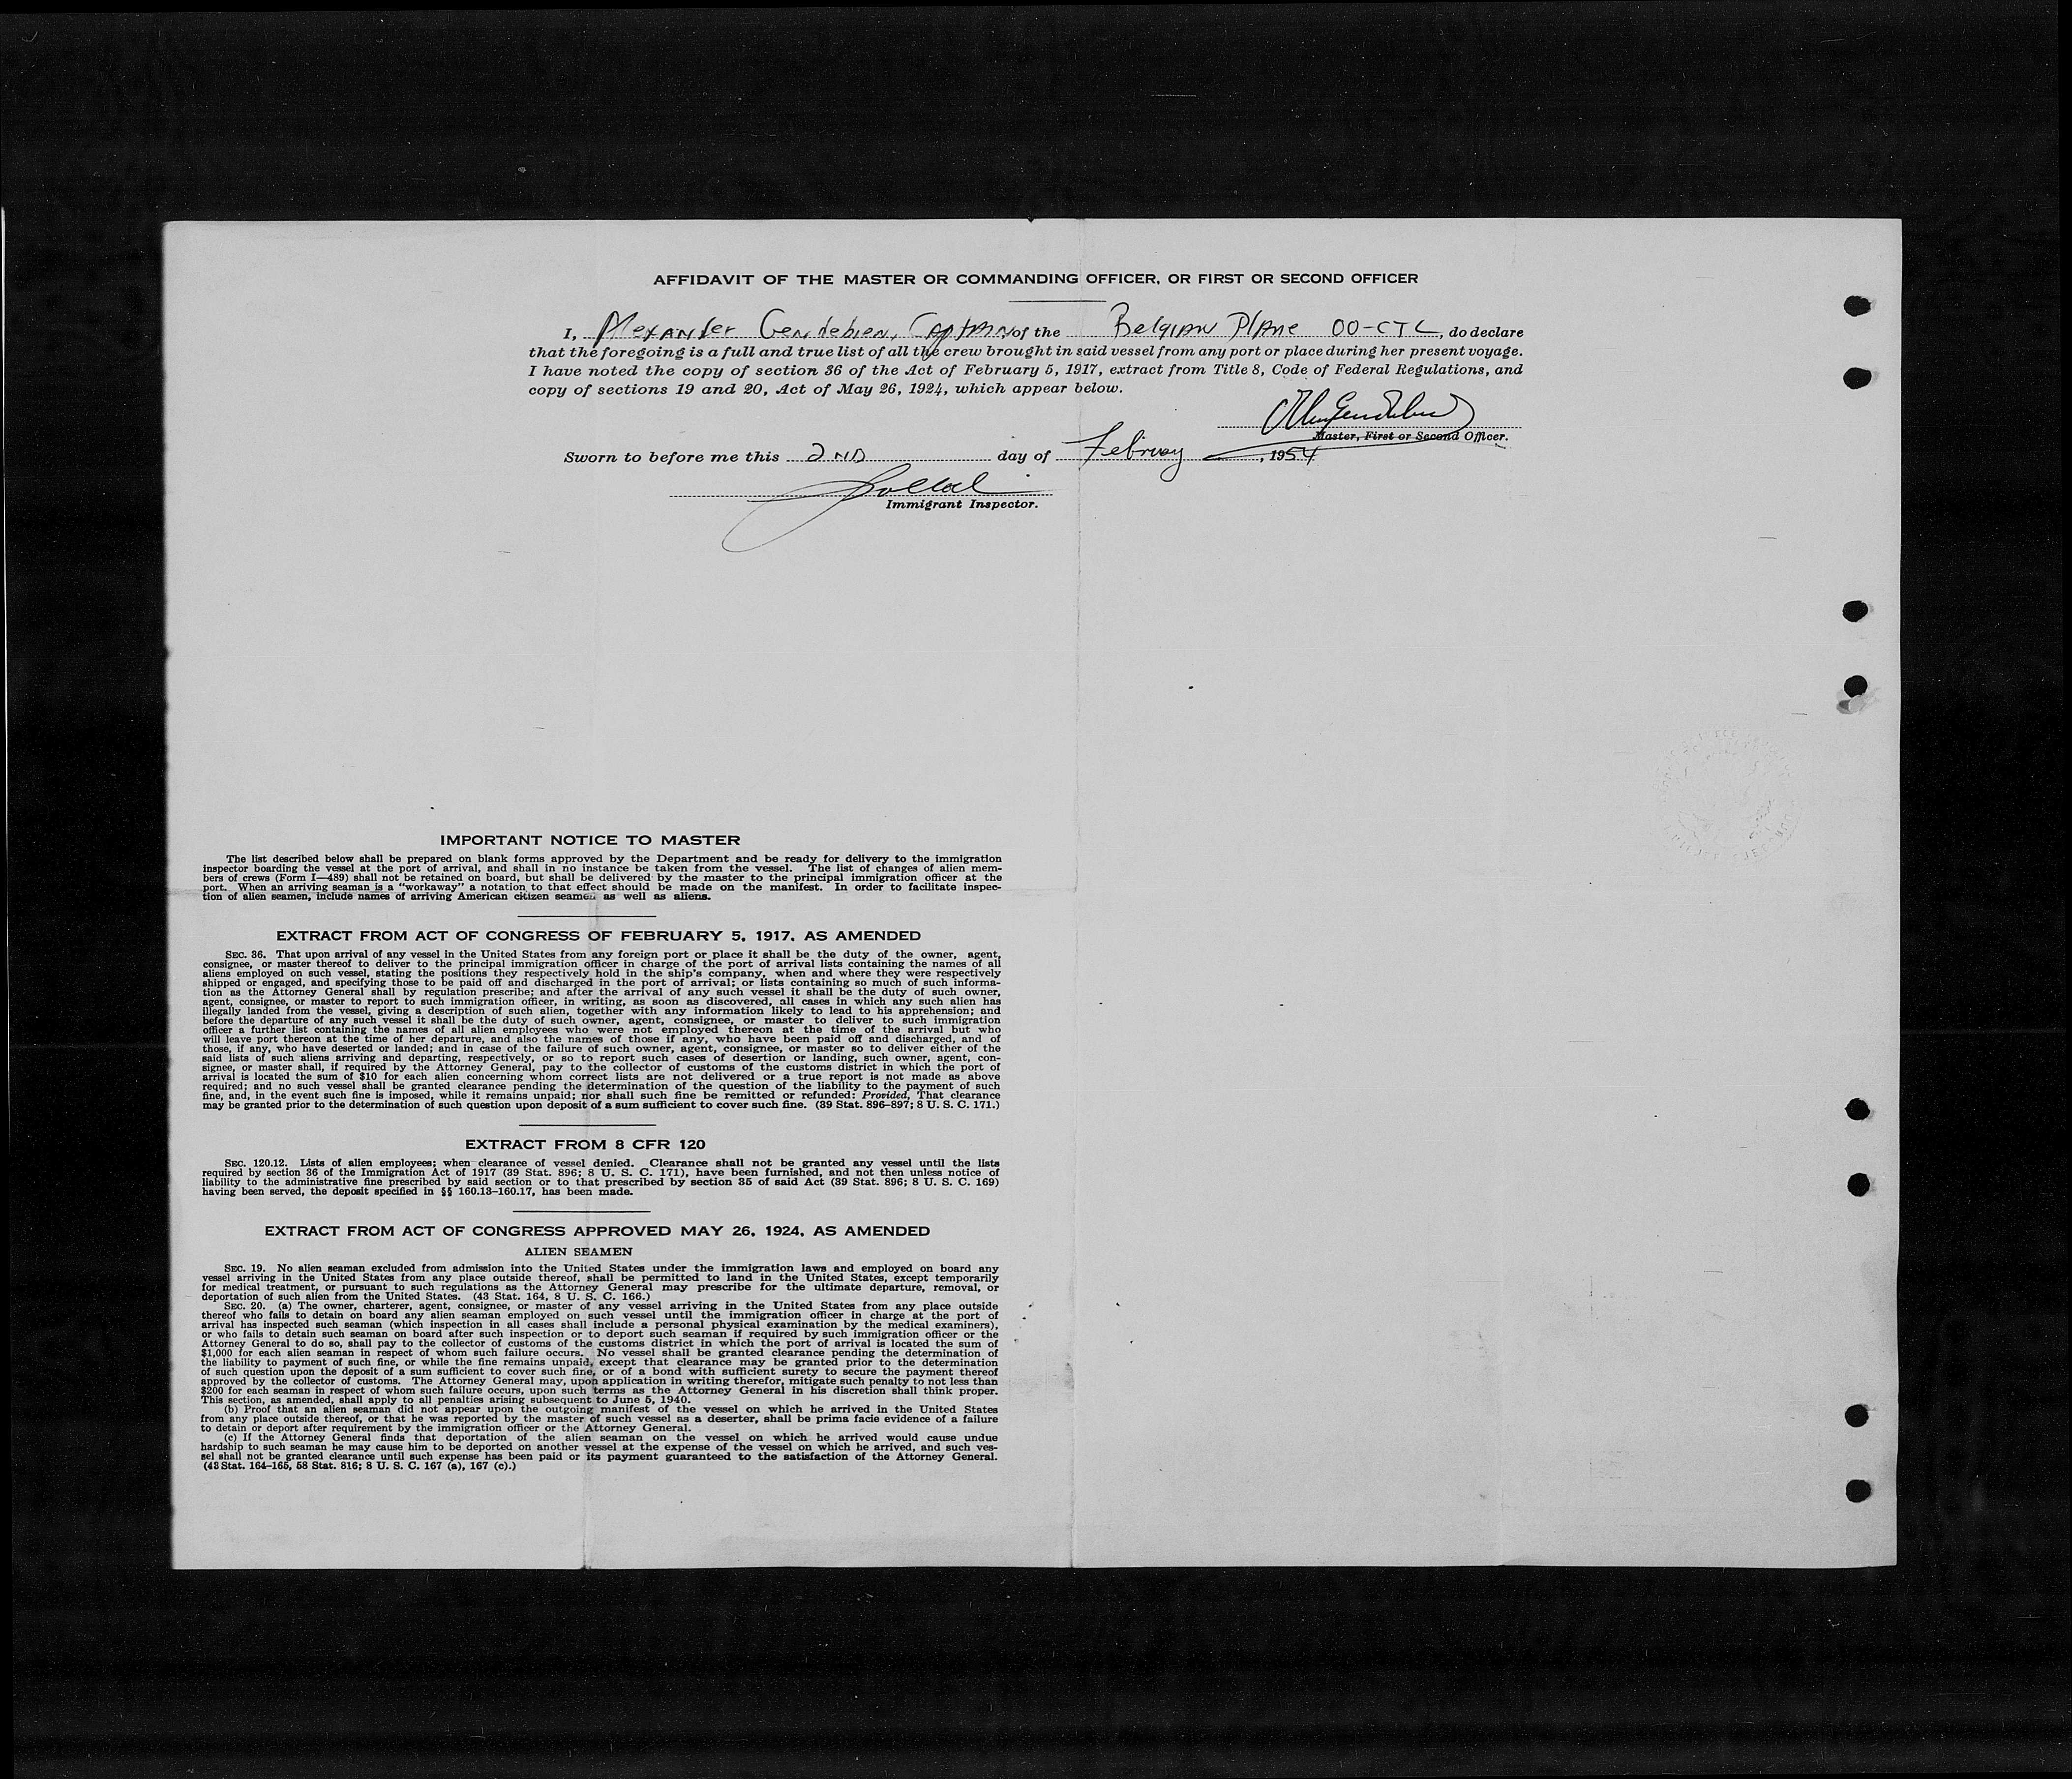 AFFIDAVIT OF THE MASTER OR COMMANDING OFFICER, OR FIRST OR SECOND OFFICER
I, Alexander Gendebien, Captain of the Belgian Plane OO-CTL, do declare
that the foregoing is a full and true list of all the crew brought in said vessel from any port or place during her present voyage.
I have noted the copy of section 36 of the Act of February 5, 1917, extract from Title 8, Code of Federal Regulations, and
copy of sections 19 and 20, Act of May 26, 1924, which appear below.
Master, First or Second Officer.
Sworn to before me this 2ND day of February, 1954
Immigrant Inspector.
IMPORTANT NOTICE TO MASTER
The list described below shall be prepared on blank forms approved by the Department and be ready for delivery to the immigration
inspector boarding the vessel at the port of arrival, and shall in no instance be taken from the vessel. The list of changes of alien mem-
bers of crews (Form I—489) shall not be retained on board, but shall be delivered by the master to the principal immigration officer at the
port. When an arriving seaman is a "workaway" a notation to that effect should be made on the manifest. In order to facilitate inspec-
tion of alien seamen, include names of arriving American citizen seamen as well as aliens.
EXTRACT FROM ACT OF CONGRESS OF FEBRUARY 5, 1917, AS AMENDED
SEC. 36. That upon arrival of any vessel in the United States from any foreign port or place it shall be the duty of the owner, agent,
consignee, or master thereof to deliver to the principal immigration officer in charge of the port of arrival lists containing the names of all
aliens employed on such vessel, stating the positions they respectively hold in the ship's company, when and where they were respectively
shipped or engaged, and specifying those to be paid off and discharged in the port of arrival; or lists containing so much of such informa-
tion as the Attorney General shall by regulation prescribe; and after the arrival of any such vessel it shall be the duty of such owner,
agent, consignee, or master to report to such immigration officer, in writing, as soon as discovered, all cases in which any such alien has
illegally landed from the vessel, giving a description of such alien, together with any information likely to lead to his apprehension; and
before the departure of any such vessel it shall be the duty of such owner, agent, consignee, or master to deliver to such immigration
officer a further list containing the names of all alien employees who were not employed thereon at the time of the arrival but who
will leave port thereon at the time of her departure, and also the names of those if any, who have been paid off and discharged, and of
those, if any, who have deserted or landed; and in case of the failure of such owner, agent, consignee, or master so to deliver either of the
said lists of such aliens arriving and departing, respectively, or so to report such cases of desertion or landing, such owner, agent, con-
signee, or master shall, if required by the Attorney General, pay to the collector of customs of the customs district in which the port of
arrival is located the sum of $10 for each alien concerning whom correct lists are not delivered or a true report is not made as above
required; and no such vessel shall be granted clearance pending the determination of the question of the liability to the payment of such
fine, and, in the event such fine is imposed, while it remains unpaid; nor shall such fine be remitted or refunded: Provided, That clearance
may be granted prior to the determination of such question upon deposit of a sum sufficient to cover such fine. (39 Stat. 896–897; 8 U. S. C. 171.)
EXTRACT FROM 8 CFR 120
SEC. 120.12. Lists of alien employees; when clearance of vessel denied. Clearance shall not be granted any vessel until the lists
required by section 36 of the Immigration Act of 1917 (39 Stat. 896; 8 U. S. C. 171), have been furnished, and not then unless notice of
liability to the administrative fine prescribed by said section or to that prescribed by section 35 of said Act (39 Stat. 896; 8 U. S. C. 169)
having been served, the deposit specified in §§ 160.13–160.17, has been made.
EXTRACT FROM ACT OF CONGRESS APPROVED MAY 26, 1924, AS AMENDED
ALIEN SEAMEN
SEC. 19. No alien seaman excluded from admission into the United States under the immigration laws and employed on board any
vessel arriving in the United States from any place outside thereof, shall be permitted to land in the United States, except temporarily
for medical treatment, or pursuant to such regulations as the Attorney General may prescribe for the ultimate departure, removal, or
deportation of such alien from the United States. (43 Stat. 164, 8 U. S. C. 166.)
SEC. 20. (a) The owner, charterer, agent, consignee, or master of any vessel arriving in the United States from any place outside
thereof who fails to detain on board any alien seaman employed on such vessel until the immigration officer in charge at the port of
arrival has inspected such seaman (which inspection in all cases shall include a personal physical examination by the medical examiners),
or who fails to detain such seaman on board after such inspection or to deport such seaman if required by such immigration officer or the
Attorney General to do so, shall pay to the collector of customs of the customs district in which the port of arrival is located the sum of
$1,000 for each alien seaman in respect of whom such failure occurs. No vessel shall be granted clearance pending the determination of
the liability to payment of such fine, or while the fine remains unpaid, except that clearance may be granted prior to the determination
of such question upon the deposit of a sum sufficient to cover such fine, or of a bond with sufficient surety to secure the payment thereof
approved by the collector of customs. The Attorney General may, upon application in writing therefor, mitigate such penalty to not less than
$200 for each seaman in respect of whom such failure occurs, upon such terms as the Attorney General in his discretion shall think proper.
This section, as amended, shall apply to all penalties arising subsequent to June 5, 1940.
(b) Proof that an alien seaman did not appear upon the outgoing manifest of the vessel on which he arrived in the United States
from any place outside thereof, or that he was reported by the master of such vessel as a deserter, shall be prima facie evidence of a failure
to detain or deport after requirement by the immigration officer or the Attorney General.
(c) If the Attorney General finds that deportation of the alien seaman on the vessel on which he arrived would cause undue
hardship to such seaman he may cause him to be deported on another vessel at the expense of the vessel on which he arrived, and such ves-
sel shall not be granted clearance until such expense has been paid or its payment guaranteed to the satisfaction of the Attorney General.
(43 Stat. 164–165, 58 Stat. 816; 8 U. S. C. 167 (a), 167 (c).)